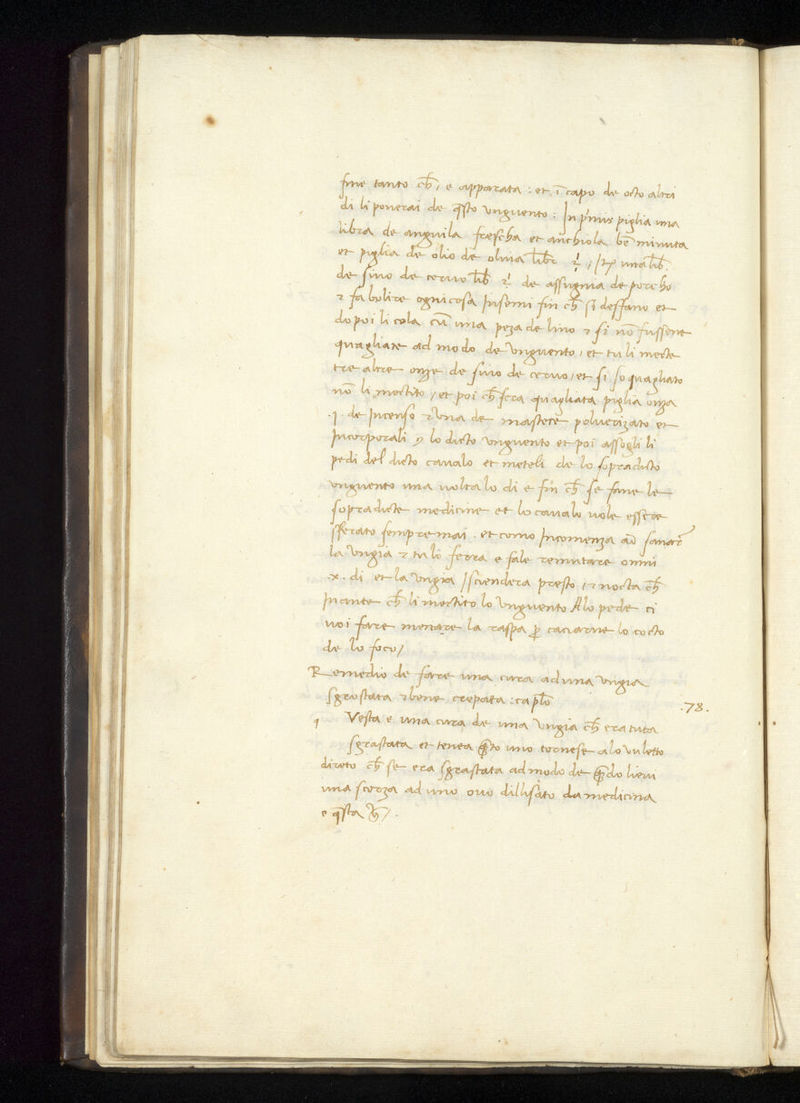 fine tanto ch̄ / e apparata : et ī capo de octo altri
di li ponerai de q̄sto vnguento : In p̄mis piglia una
libra de anguila frescha et anchiola bē minuta
et piglia de olio de oliua libr̄ una lib̄.
de siuo de ceruo lib̄ de assugnia de porcho
⁊ fa bolire ogni cosa Insemi fin ch̄ si deffano et
dopoi li cola cū una peza de lino ⁊ si nō fussene
quagliate ad modo de vnguento / et tu li mecte
tre altre onze de siuo de ceruo / et si so quagliato
nō li mectito / et poi ch̄ sera quagliata piglia onza
.I. de Incenso ⁊ una de mastece poluerizato et
Incorporali lo dicto vnguento et poi assogli li
pedi del dicto caualo et meteli de lo sopradicto
vnguento una uolta lo di e fin ch̄ se fane le
sopradicte medicine et lo caualo uole essere
sferato sempremai . et como Incomenza sanar̄
la vngia ⁊ tu lo ferra e fale remutare omni
.x. di et la vngia Iscendera presto / ⁊ nocta ch̄
Inante ch̄ li mectito lo vnguento Alo pede ci
uoi fare menare la raspa p̄ caciarne lo cocto
de lo foco /
Remedio de fare una cura ad una vngia
sgrostata ⁊ bene crepata : capl̄o .78.
q Vesta e una cura de una vngia ch̄ era tuta
sgrastata et tenea q̄sto uno tornese alo vuletto
direto ch̄ se era sgrastata ad modo de q̄ndo lieui
una scorza ad uno ouo dillisato da medicina
e q̄sta